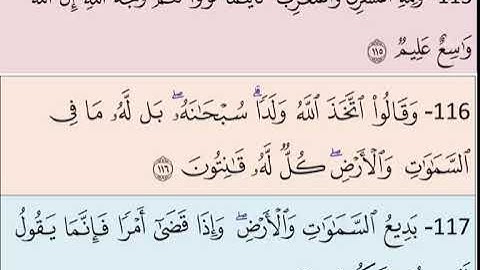 115- وَلِلَّهِ ٱلْمَشْرِقُ وَٱلْمَغْرِبُ فَأَيْنَمَا تُوَلُّوا۟ فَثَمَّ وَجْهُ ٱللَّهِ إِنَّ ٱللَّهَ
وَٰسِعٌ عَلِيمٌ ١١٥
116- وَقَالُوا۟ ٱتَّخَذَ ٱللَّهُ وَلَدًا ۗ سُبْحَٰنَهُۥ ۖ بَل لَّهُۥ مَا فِى
ٱلسَّمَٰوَٰتِ وَٱلْأَرْضِ ۖ كُلٌّ لَّهُۥ قَٰنِتُونَ ١١٦
117- بَدِيعُ ٱلسَّمَٰوَٰتِ وَٱلْأَرْضِ ۖ وَإِذَا قَضَىٰٓ أَمْرًا فَإِنَّمَا يَقُولُ